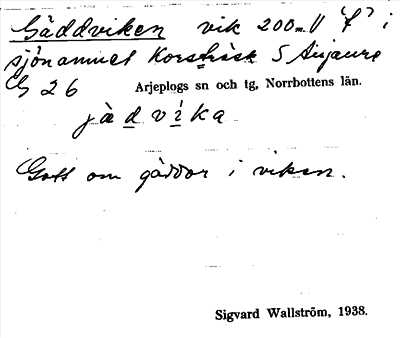 Gäddviken vik 200m V "f" i
sjönamnet Korsträsk S Aisjaure
G 26 Arjeplogs sn och tg, Norrbottens län.
jàdvíka
Gott om gäddor i viken.
Sigvard Wallström, 1938.